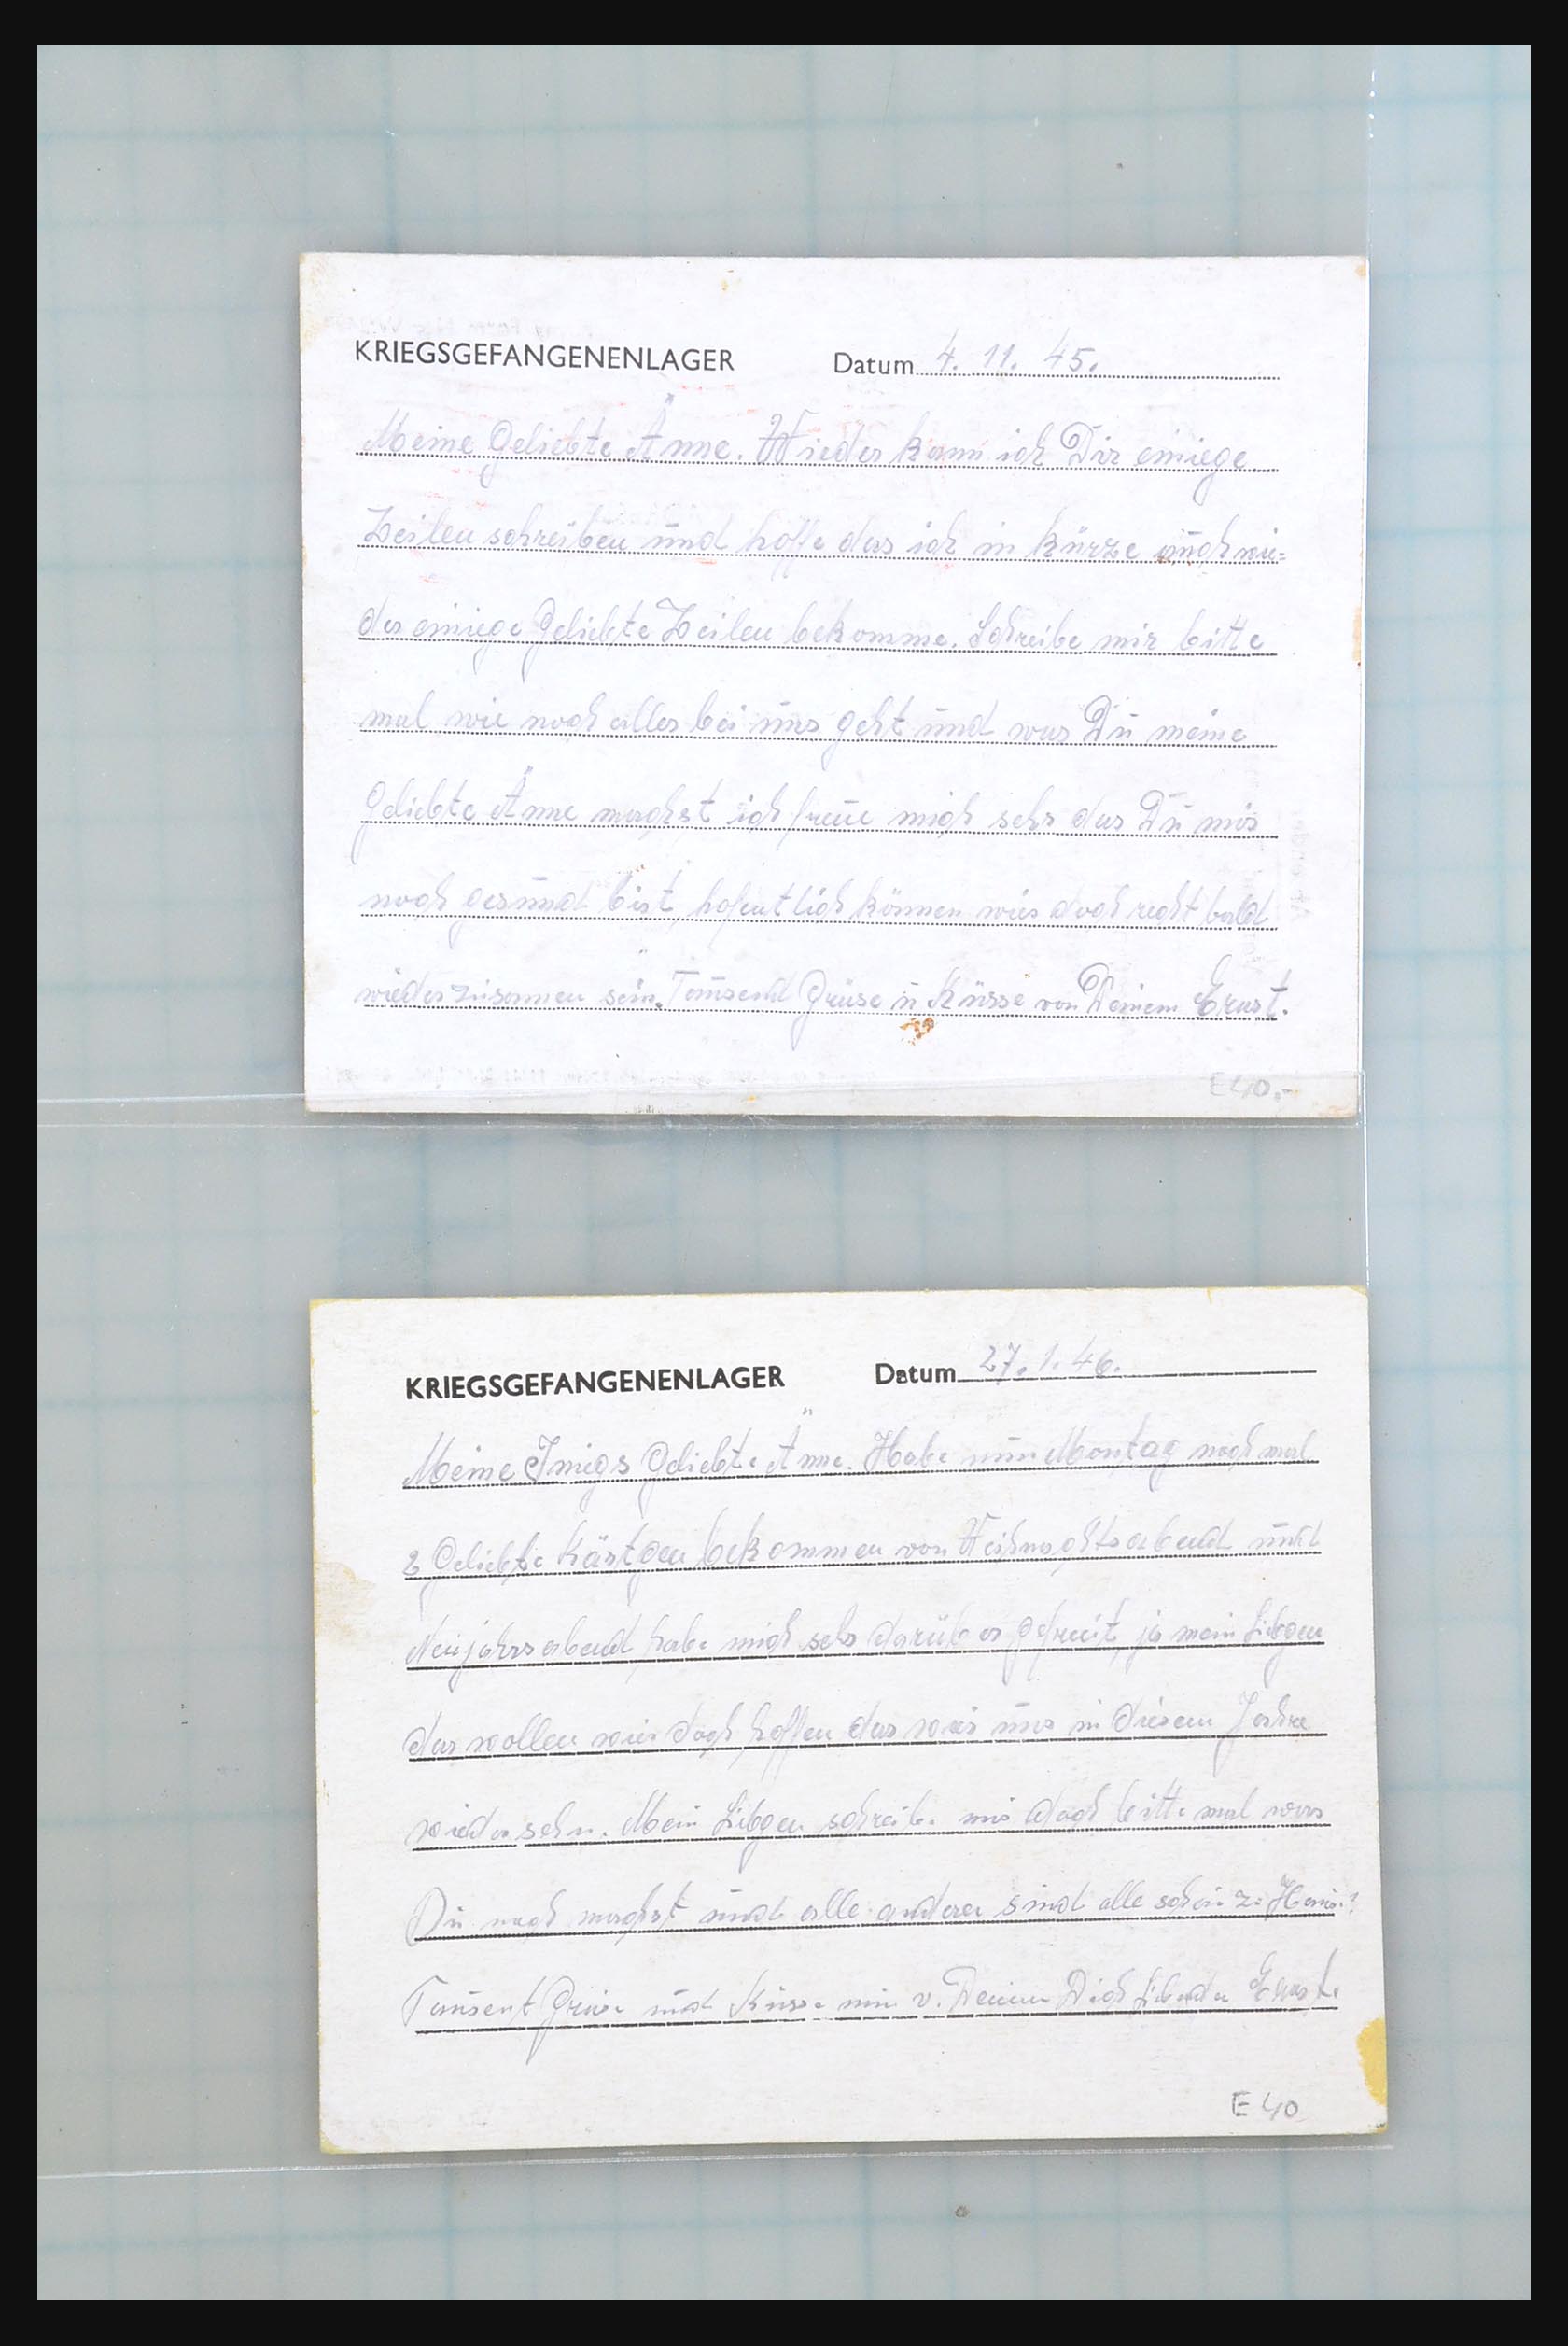 KRIEGSGEFANGENENLAGER Datum 4. 11. 45.
Meine Geliebte Änne. Wieder kann ich Dir einiege
Zeilen schreiben und hoffe das ich in kürze auch wie=
der einiege Geliebte Zeilen bekomme. Schreibe mir bitte
mal wie noch alles bei uns geht und was Du meine
Geliebte Änne machst ich freue mich sehr das Du mir
noch gesund bist hofentlich können wir doch recht bald
wieder zusammen sein. Tausend Grüse u Küsse von Deinem Ernst.
E 40.-
KRIEGSGEFANGENENLAGER Datum 27. 1. 46.
Meine Inigs Geliebte Änne. Habe nun Montag noch mal
2 Geliebte Kärtgen bekommen von Weihnachtsabend und
Neujahrsabend habe mich sehr darüber gefreut, ja mein Libgen
das wollen wir doch hoffen das wir uns in diesem Jahre
wieder sehn. Mein Libgen schreibe mir doch bitte mal was
Du noch machst und alle anderen sind alle schon z.
Tausent Grüse und Küsse nun v. Deinem Dich Libender Ernst.
E 40